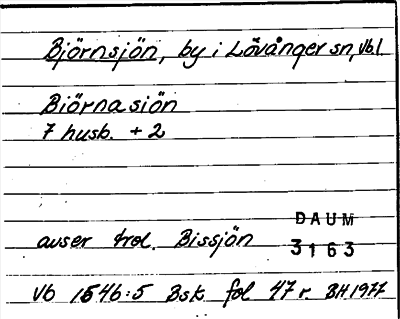 Björnsjön, by i Lövånger sn, Vbl
Biörnasiön
7 husb. + 2
DAUM
avser trol. Bissjön
3163
Vb 1546:5 Bsk fol 47 r. BH 1977